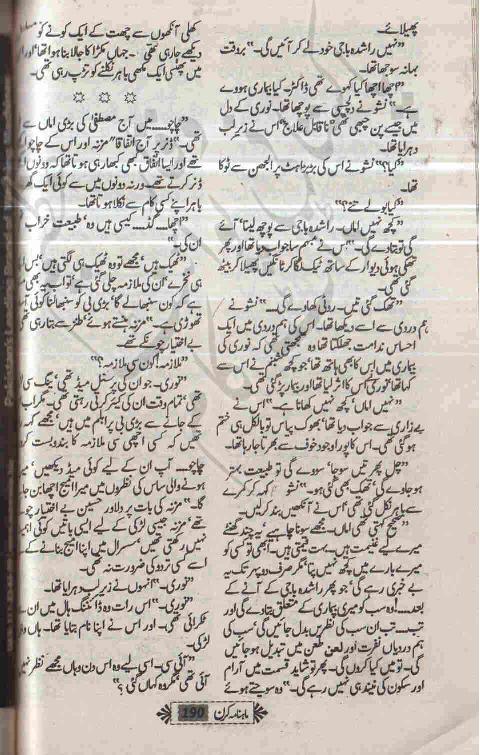 پھیلائے۔
”نہیں راشدہ باجی خود لے کر آئیں گی۔“ بروقت
بہانہ سوجھا تھا۔
”اچھا اچھا کیا کہوے تھی ڈاکٹر۔ کیا بیماری ہووے
ہے۔“ نشو نے دلچسپی سے پوچھا تھا۔ نوری کے دل
میں جیسے پن چبھی تھی ”ناقابل علاج“ اس نے زیر لب
دہرایا تھا۔
”کیا؟“ نشو نے اس کی بڑبڑاہٹ پر الجھن سے ٹوکا
تھا۔
”کیا بولے تھے؟“
”کچھ نہیں اماں۔ راشدہ باجی سے پوچھ لینا‘ آئے
گی تو بتا دے گی۔“ اس نے مبہم سا جواب دیا تھا اور پھر
تھکی ہوئی دیوار کے ساتھ ٹیک لگا کر ٹانگیں پھیلا کر بیٹھ
گئی تھی۔
”تھک گئی تیں۔ روٹی کھاوے گی۔۔۔“ نشو نے
ہمدردی سے اسے دیکھا تھا۔ اس کی ہمدردی میں ایک
احساس ندامت جھلکتا تھا وہ سمجھتی تھی کہ نوری کی
بیماری میں اس کا بھی ہاتھ تھا‘ جو کچھ شمیم نے اس سے
کہا تھا‘ نوری نے اس کا اثر لیا تھا اور بیمار پڑ گئی تھی۔
”نہیں اماں‘ کچھ نہیں کھانا ہے۔“ اس نے
بے زاری سے جواب دیا تھا‘ بھوک پیاس تو بالکل ہی ختم
ہو گئی تھی۔ اس کا پورا وجود خوف سے بھرتا جا رہا تھا۔
”چل پھر تیں سو جا‘ سووے گی تو طبیعت بہتر
ہو جاوے گی‘ تھک بھی گئی ہو۔“ نشو کہہ کر کمرے
سے باہر نکل گئی تھی‘ اس نے آنکھیں بند کر لیں۔
”صحیح کہتی تھی اماں۔ مجھے سونا چاہیے‘ یہ چند گھنٹے
میرے لیے غنیمت ہیں۔ بہت قیمتی ہیں۔ ابھی تو کسی کو
میرے بارے میں کچھ نہیں پتا‘ مگر صرف دوپہر تک یہ
بے خبری رہے گی‘ جو پھر راشدہ باجی کے آنے کے
بعد۔۔۔! وہ سب کو میری بیماری کے متعلق بتا دے گی اور
تب۔۔۔ تب ان سب کی نظریں بدل جائیں گی‘ سب کی
ہمدردیاں نفرت اور لعن طعن میں تبدیل ہو جائیں
گی۔ تو میں کیا کروں گی۔ پھر تو شاید قسمت میں آرام
اور سکون کی نیند ہی نہیں رہے گی۔“ وہ سوچتے ہوئے
کھلی آنکھوں سے چھت کے ایک کونے کو
دیکھے جا رہی تھی۔ جہاں مکڑا کا جالا بنا ہوا تھا‘ اور
میں پھنسی ایک مکھی باہر نکلنے کو تڑپ رہی تھی۔
☼ ☼ ☼
”چاچو۔۔۔ میں آج مصطفیٰ کی بڑی اماں سے
تھی۔“ ڈنر پر آج اتفاقاً ”مزنہ اور اس کے چاچو
تھے اور ایسا اتفاق کبھی کبھار ہی ہوتا تھا کہ دونوں
ڈنر کرتے تھے۔ ورنہ دونوں میں سے کوئی ایک گھر
باہر اپنے کسی کام سے نکلا ہوتا تھا۔
”اچھا۔۔۔ گڈ۔۔۔ کیسی ہیں وہ‘ طبیعت خراب
ان کی۔“
”ٹھیک ہیں‘ مجھے تو وہ ٹھیک ہی لگتی ہیں‘ بس
ہی نخرے‘ ان کی ملازمہ چلی گئی ہے‘ تو اب یہ بھی
ہے کہ کون سنبھالے گا‘ بڑی بی کو سنبھالنا کوئی
تھوڑی ہے۔“ مزنہ ہنستے ہوئے‘ طنز سے بتا رہی تھی
بے اختیار چونکے تھے۔
”ملازمہ! کون سی ملازمہ؟“
”نوری۔ جو ان کی پرسنل میڈ تھی‘ ینگ سی
تھی‘ تمام وقت ان کی کیئر کرتی رہتی تھی۔
کے جانے سے بڑی بی پرابلم میں ہیں‘ مجھے کہہ
تھیں کہ کسی اچھی سی ملازمہ کا بندوبست
چاچو۔۔۔ آپ ان کے لیے کوئی میڈ دیکھیں‘
ہونے والی ساس کی نظروں میں میرا امیج اچھا بن جائے
گا۔“ مزنہ کی بات پر دلاور حسین بے اختیار
تھے‘ مزنہ جیسی لڑکی کے لیے ایسی باتیں کوئی
نہیں رکھتی تھیں‘ سسرال میں اپنا امیج بنانے کے
اسے کسی تردد کی ضرورت نہ تھی۔
”نوری۔“ انہوں نے زیر لب دہرایا تھا۔
”نوری۔“ اس رات وہ ڈائننگ ہال میں ان
ٹکرائی تھی۔ اور اس نے اپنا نام بتایا تھا۔ ہاں
لڑکی۔
”آئی سی۔ اسی لیے وہ اس دن وہاں مجھے نظر نہیں
آئی تھی‘ مگر وہ کہاں گئی؟“
ماہنامہ کرن 190